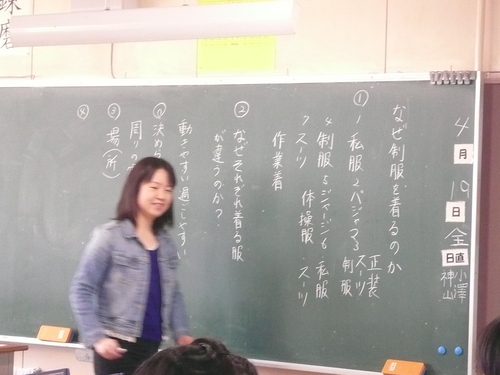 4月19日金
日直 小澤 神山
なぜ制服を着るのか
①1私服2パジャマ3正装
スーツ
制服
4制服5ジャージ6私服
7スーツ 体操服 スーツ
作業着
②なぜそれぞれ着る服
が違うのか？
動きやすい過ごしやすい
周りの
③場(所)
④
錬磨